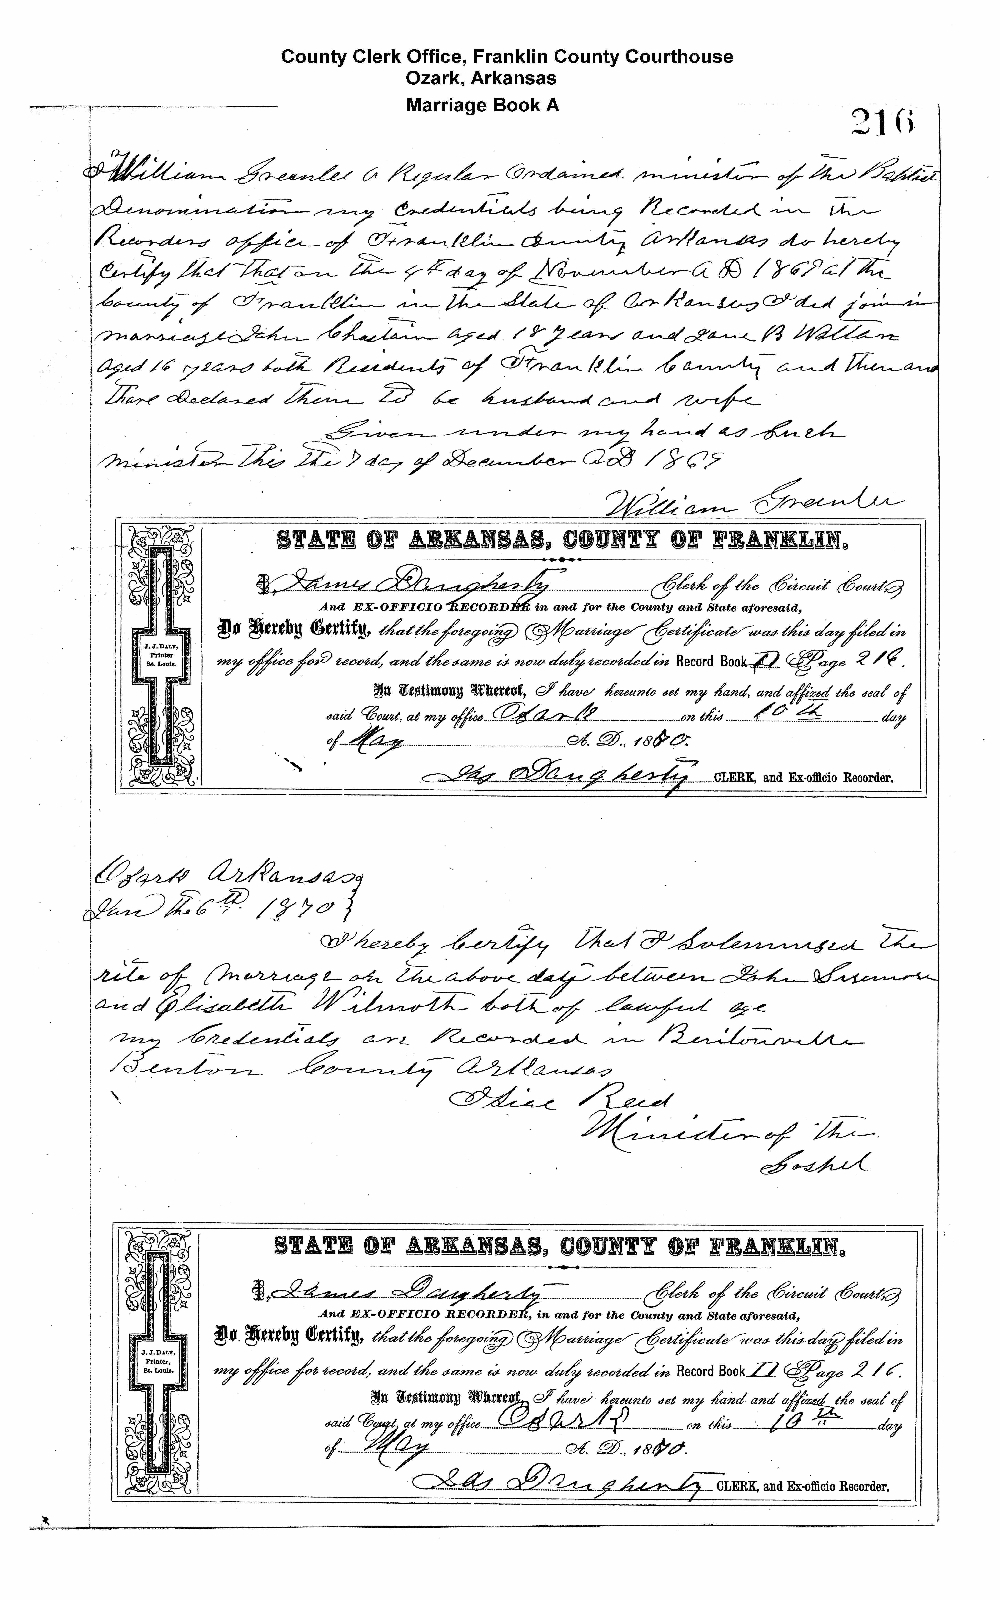 County Clerk Office, Franklin County Courthouse
Ozark, Arkansas
Marriage Book A
216
I William Greenlee a Regular Ordained minister of the Baptist
Denomination my Credentials being Recorded in the
Recorders office of Franklin County Arkansas do hereby
Certify that that on the 4th day of November A D 1869 at the
County of Franklin in the State of Arkansas I did join in
marriage John Chastain aged 18 years and Jane B
aged 16 years both Residents of Franklin County and then and
there Declared them to be husband and wife
Given under my hand as Such
minister this the 7 day of December AD 1869
William Greenlee
STATE OF ARKANSAS, COUNTY OF FRANKLIN.
I, James Daugherty Clerk of the Circuit Court,
And EX-OFFICIO RECORDER in and for the County and State aforesaid,
Do Hereby Certify, that the foregoing Marriage Certificate was this day filed in
my office for record, and the same is now duly recorded in Record Book II Page 216.
In Testimony Whereof, I have hereunto set my hand, and affixed the seal of
said Court, at my office Ozark on this 10th day
of May A. D., 1870.
Jas Daugherty CLERK, and Ex-officio Recorder.
J. J. DALY,
Printer
St. Louis.
Ozark Arkansas
Jan the 6th 1870
I hereby Certify that I Solemnised the
rite of Marriage on the above day between John
and Elisabeth Wilmoth both of lawful age
my Credentials are Recorded in Bentonville
Benton County Arkansas
Reed
Minister of the
Gospel
STATE OF ARKANSAS, COUNTY OF FRANKLIN.
I, James Daugherty Clerk of the Circuit Court,
And EX-OFFICIO RECORDER, in and for the County and State aforesaid,
Do Hereby Certify, that the foregoing Marriage Certificate was this day filed in
my office for record, and the same is now duly recorded in Record Book II Page 216.
In Testimony Whereof, I have hereunto set my hand and affixed the seal of
said Court, at my office Ozark on this 10th day
of May A. D., 1870.
Jas Daugherty CLERK, and Ex-officio Recorder.
J. J. DALY,
Printer,
St. Louis.